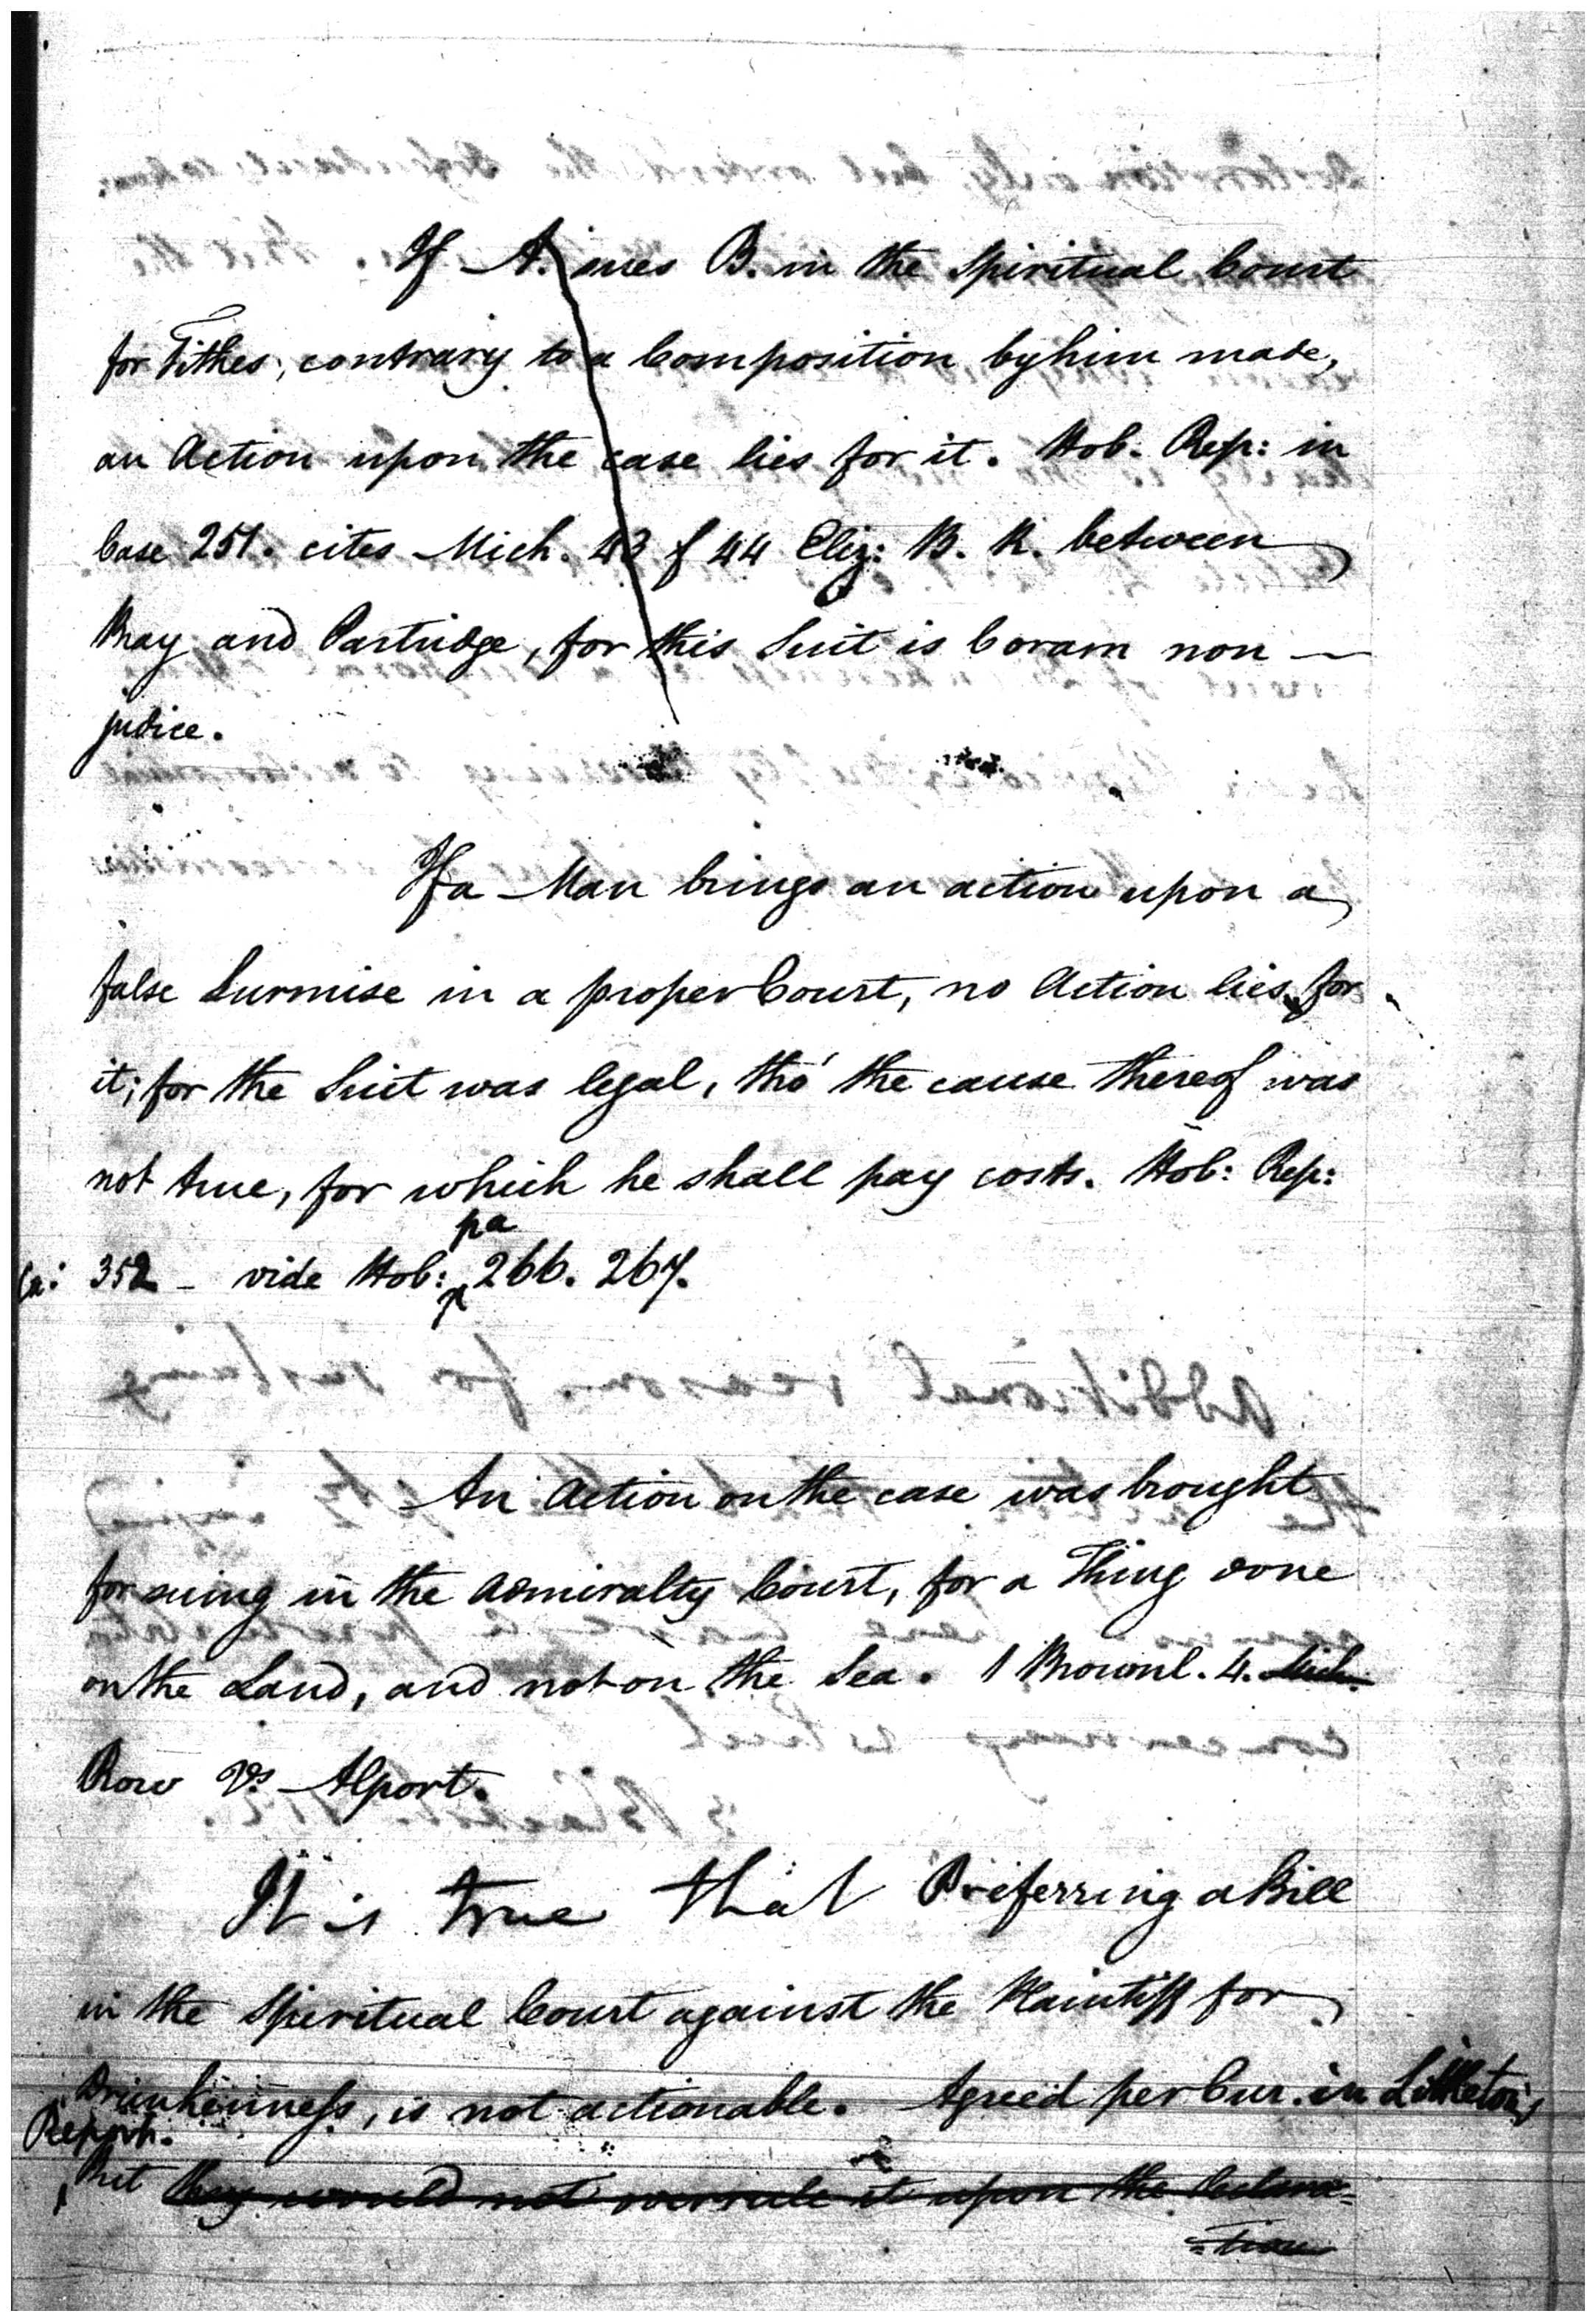 If A. sues B. in the Spiritual Court
for Tithes, contrary to a Composition by him made,
an Action upon the case lies for it. Hob. Rep: in
Case 251. cites Mich. 43 & 44 Eliz: B. R. between
Bray and Partridge, for this Suit is Coram non —
judice.
If a Man brings an action upon a
false Surmise in a proper Court, no Action lies for
it; for the Suit was legal, tho' the cause thereof was
not true, for which he shall pay costs. Hob: Rep:
pa
Ca: 352 - vide Hob: 266. 267.
An Action on the case was brought
for suing in the Admiralty Court, for a Thing done
on the Land, and not on the Sea. 1 Brownl. 4. Mich.
Row Vs Alport.
It is true that Preferring a Bill
in the Spiritual Court against the Plaintiff for
Drunkenness, is not actionable. Agreed per Cur. in Littleton's
Reports.
But they would not overrule it upon the Declara=
=tion